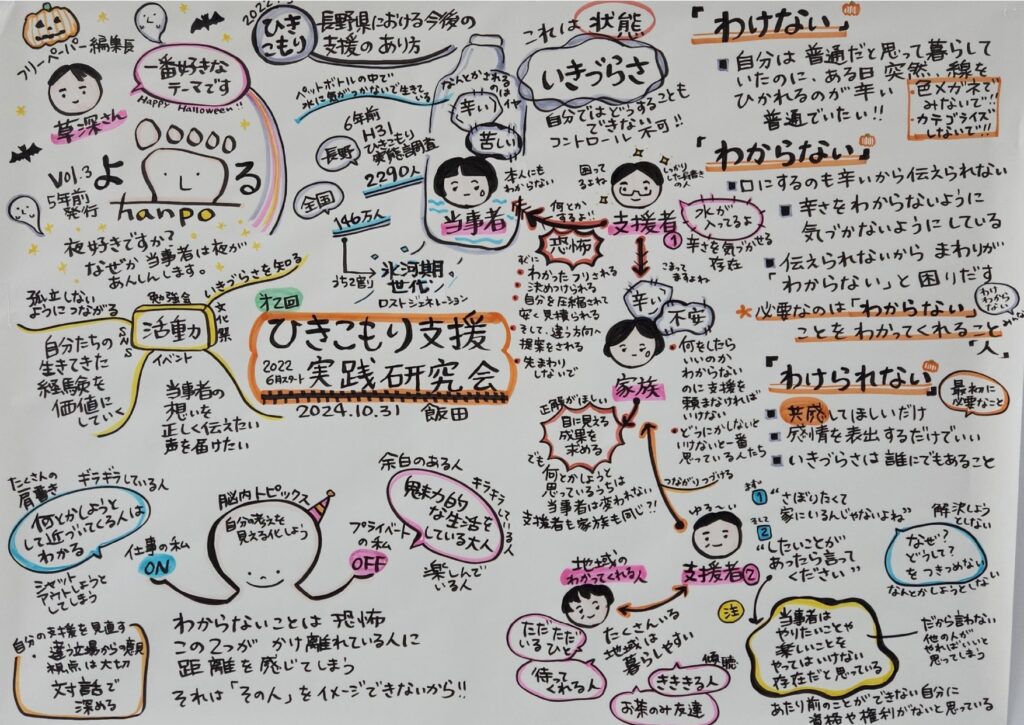 フリーペーパー編集長
草深さん
一番好きな
テーマです
Happy Halloween!!
よる
hanpo
vol.3
5年前
発行
夜好きですか
なぜか当事者は夜が
あんしんします。
ひき
こもり
長野県における今後の
支援のあり方
ペットボトルの中で
水に気がつかないで生きている
6年前
H31
ひきこもり
実態調査
長野
2290人
全国
146万人
氷河期
世代
ロストジェネレーション
なんとかされるのは
辛い
苦しい
当事者
本人にも
わからない
これは状態
いきづらさ
自分ではどうすることも
できない
コントロール 不可!!
困って
るよね
何とか
するよ
支援者
①
水が
入ってるよ
辛さを気づかせる
存在
恐怖
わかったフリされる
決めつけられる
自分を圧縮されて
安く見積られる
そして、違う方向へ
提案をされる
先まわり
しないで
こまって
ますよね
辛い
不安
家族
何をしたら
いいのか
わからない
のに支援を
頼まなければ
いけない
どうにかしないと
いけないと一番
思っている人たち
正解がほしい
目に見える
成果を
求める
でも
何とかしようと
思っているうちは
当事者は変われない
支援者も家族も同じ?!
つながりつづける
ゆる〜い
支援者②
地域の
わかってくれる人
ただただ
いるひと
待って
くれる人
たくさんいる
地域は
暮らしやすい
傾聴
ききき る人
お茶のみ友達
「わけない」
自分は普通だと思って暮らして
いたのに、ある日突然、線を
ひかれるのが辛い
普通でいたい!!
色メガネで
みないで!!
カテゴライズ
しないで!!
「わからない」
口にするのも辛いから伝えられない
辛さをわからないように
気づかないようにしている
伝えられないから まわりが
「わからない」と困りだす
*必要なのは「わからない」
ことをわかってくれること
人
「わけられない」
最初に
必要なこと
共感してほしいだけ
感情を表出するだけでいい
いきづらさは誰にでもあること
まず
1
“さぼりたくて
家にいるんじゃないよね”
そして
2
“したいことが
あったら言って
ください”
解決しよう
としない
なぜ?
どうして?
をつきつめない
なんとかしようとしない
注
当事者は
やりたいことや
楽しいことを
やってはいけない
存在だと思っている
だから言わない
他の人が
やればいいと
思ってしまう
あたり前のことができない自分に
資格や権利がないと思っている
孤立しない
ようにつながる
勉強会
いきづらさを知る
文化祭
SNS
活動
イベント
自分たちの
生きてきた
経験を
価値にしていく
当事者の
想いを
正しく伝えたい
声を届けたい
オ2回
ひきこもり支援
2022
6月スタート
実践研究会
2024.10.31
飯田
たくさんの
肩書き
ギラギラしている人
何とかしようと
して近づいてくる人は
わかる
仕事の私
ON
シャットしようと
アウトしようと
してしまう
脳内トピックス
自分の考えを
見える化しよう
プライベート
の私
OFF
余白のある人
魅力的
な生活を
している大人
キラキラ
している人
楽しんで
いる人
わからないことは恐怖
この2つが かけ離れている人に
距離を感じてしまう
それは「その人」をイメージできないから!!
自分の支援を見直す
違う立場からの
視点は大切
対話で
深める